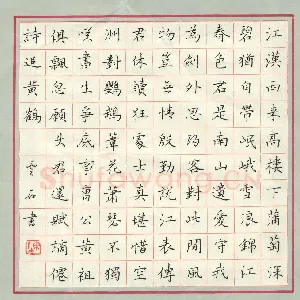 江漢西來高樓下蒲萄深
碧猶自帶岷峨雪浪錦江
春色君是南山遺愛守我
為劍外思歸客對此間風
物豈無情殷勤說江表傳
君休讀狂處士真堪惜空
洲對鸚鵡葦花蕭瑟不獨
笑書生爭底事曹公黃祖
俱飄忽願使君還賦謫僊
詩追黃鶴
雲石書